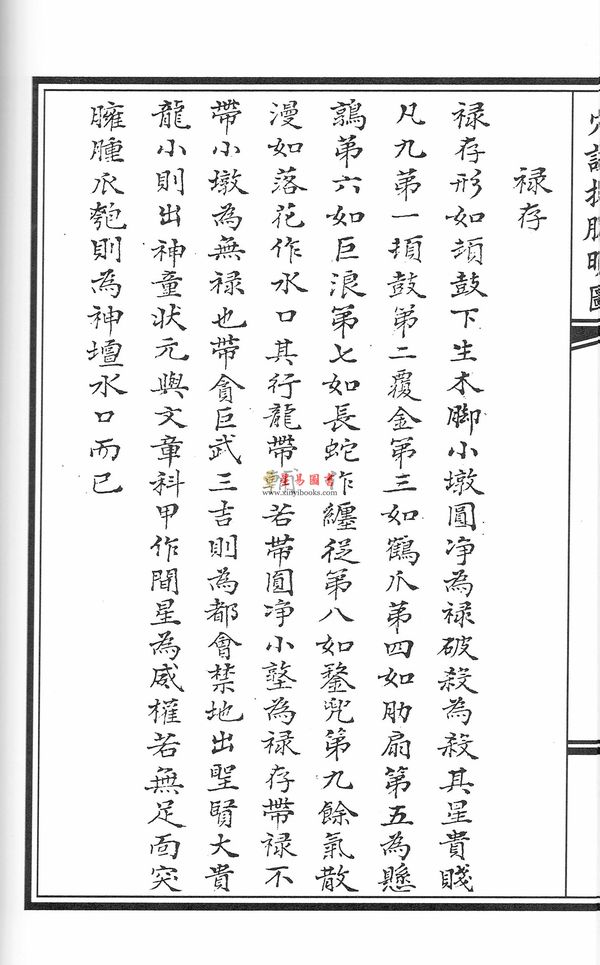 禄存
禄存形如頓鼓下生木脚小墩圓净為禄破殺為殺其星貴賤
凡九第一頓鼓第二覆金第三如鶴爪第四如肋扇第五為懸
鶉第六如巨浪第七如長蛇作纏從第八如鍪兜第九餘氣散
漫如落花作水口其行龍帶輔若帶圓净小墩為禄存帶禄不
帶小墩為無禄也帶貪巨武三吉則為都會禁地出聖賢大貴
龍小則出神童狀元與文章科甲作間星為威權若無足面突
臃腫爪匏則為神壇水口而已
星易圖書
www.xinyibooks.com